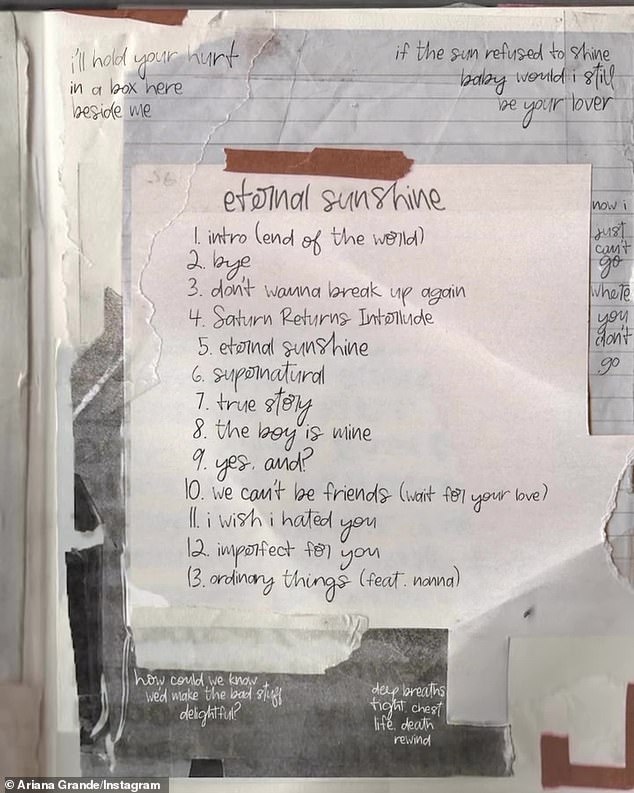 i'll hold your hurt
in a box here
beside me
if the sun refused to shine
baby would i still
be your lover
eternal sunshine
1. intro (end of the world)
2. bye
3. don't wanna break up again
4. Saturn Returns Interlude
5. eternal sunshine
6. supernatural
7. true story
8. the boy is mine
9. yes, and?
10. we can't be friends (wait for your love)
11. i wish i hated you
12. imperfect for you
13. ordinary things (feat. nonna)
now i
just
can't
go
where
you
don't
go
how could we know
we'd make the bad stuff
delightful?
deep breaths
tight chest
life, death
rewind
© Ariana Grande/Instagram